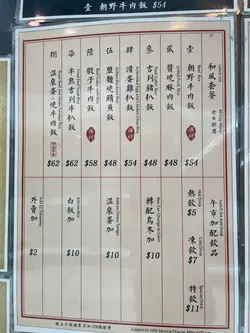 壹 朝野牛肉飯 $54
和風套餐 全日供應
All Day Menu
壹 朝野牛肉飯
$54
貳 醬燒豚肉飯
$48
叁 吉列豬扒飯
$48
肆 滑蛋雞扒飯
$54
伍 鹽麴燒鯖魚飯
$48
陸 骰子牛肉飯
$58
柒 半熟吉列牛扒飯
$62
捌 溫泉蛋燒牛肉飯
$62
午市加配飲品
熱飲 $5
凍飲 $7
特飲 $11
轉配烏冬加 $10
溫泉蛋 $10
白飯加 $10
外賣加 $2
Subject to 10% Service Charge